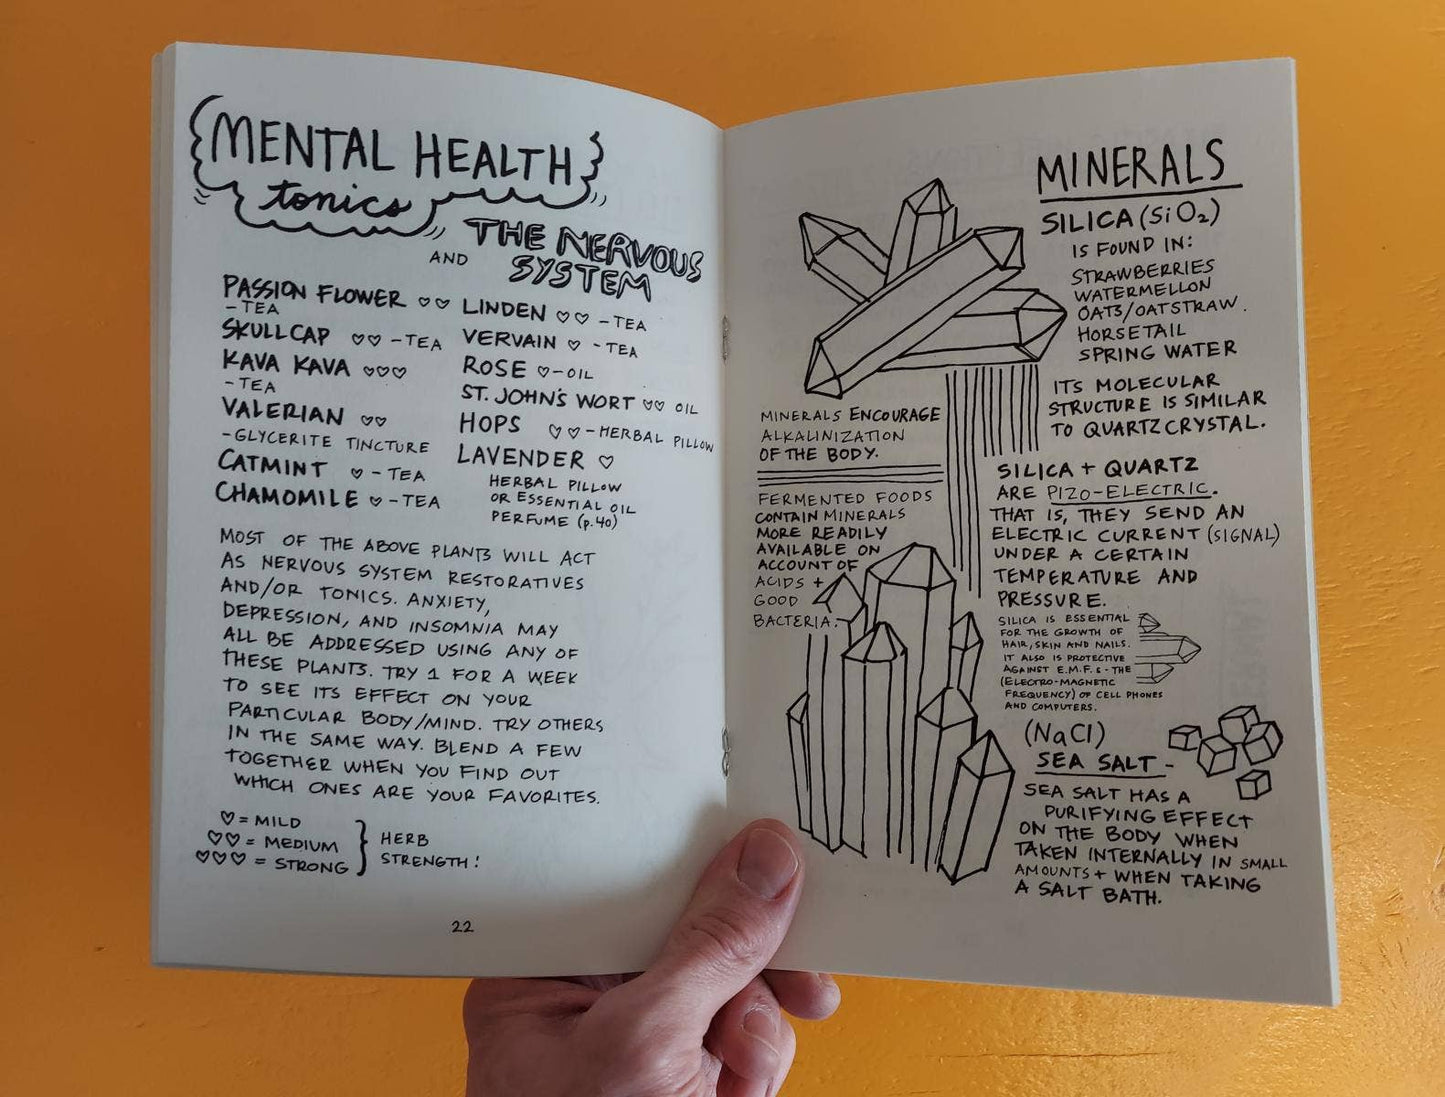 MENTAL HEALTH
tonics
AND THE NERVOUS
SYSTEM
PASSION FLOWER ♡♡
- TEA
SKULLCAP ♡♡ - TEA
KAVA KAVA ♡♡♡
- TEA
VALERIAN ♡♡
- GLYCERITE TINCTURE
CATMINT ♡ - TEA
CHAMOMILE ♡ - TEA
LINDEN ♡♡ - TEA
VERVAIN ♡ - TEA
ROSE ♡ - OIL
ST. JOHN'S WORT ♡♡ OIL
HOPS ♡♡ - HERBAL PILLOW
LAVENDER ♡
HERBAL PILLOW
OR ESSENTIAL OIL
PERFUME (p.40)
MOST OF THE ABOVE PLANTS WILL ACT
AS NERVOUS SYSTEM RESTORATIVES
AND/OR TONICS. ANXIETY,
DEPRESSION, AND INSOMNIA MAY
ALL BE ADDRESSED USING ANY OF
THESE PLANTS. TRY 1 FOR A WEEK
TO SEE ITS EFFECT ON YOUR
PARTICULAR BODY/MIND. TRY OTHERS
IN THE SAME WAY. BLEND A FEW
TOGETHER WHEN YOU FIND OUT
WHICH ONES ARE YOUR FAVORITES.
♡ = MILD
♡♡ = MEDIUM
♡♡♡ = STRONG
HERB
STRENGTH!
22
MINERALS
SILICA (SiO₂)
IS FOUND IN:
STRAWBERRIES
WATERMELLON
OATS/OATSTRAW.
HORSETAIL
SPRING WATER
ITS MOLECULAR
STRUCTURE IS SIMILAR
TO QUARTZ CRYSTAL.
MINERALS ENCOURAGE
ALKALINIZATION
OF THE BODY.
FERMENTED FOODS
CONTAIN MINERALS
MORE READILY
AVAILABLE ON
ACCOUNT OF
ACIDS +
GOOD
BACTERIA.
SILICA + QUARTZ
ARE PIZO-ELECTRIC.
THAT IS, THEY SEND AN
ELECTRIC CURRENT (SIGNAL)
UNDER A CERTAIN
TEMPERATURE AND
PRESSURE.
SILICA IS ESSENTIAL
FOR THE GROWTH OF
HAIR, SKIN AND NAILS.
IT ALSO IS PROTECTIVE
AGAINST E.M.F.s - THE
(ELECTRO-MAGNETIC
FREQUENCY) OF CELL PHONES
AND COMPUTERS.
(NaCl)
SEA SALT -
SEA SALT HAS A
PURIFYING EFFECT
ON THE BODY WHEN
TAKEN INTERNALLY IN SMALL
AMOUNTS + WHEN TAKING
A SALT BATH.